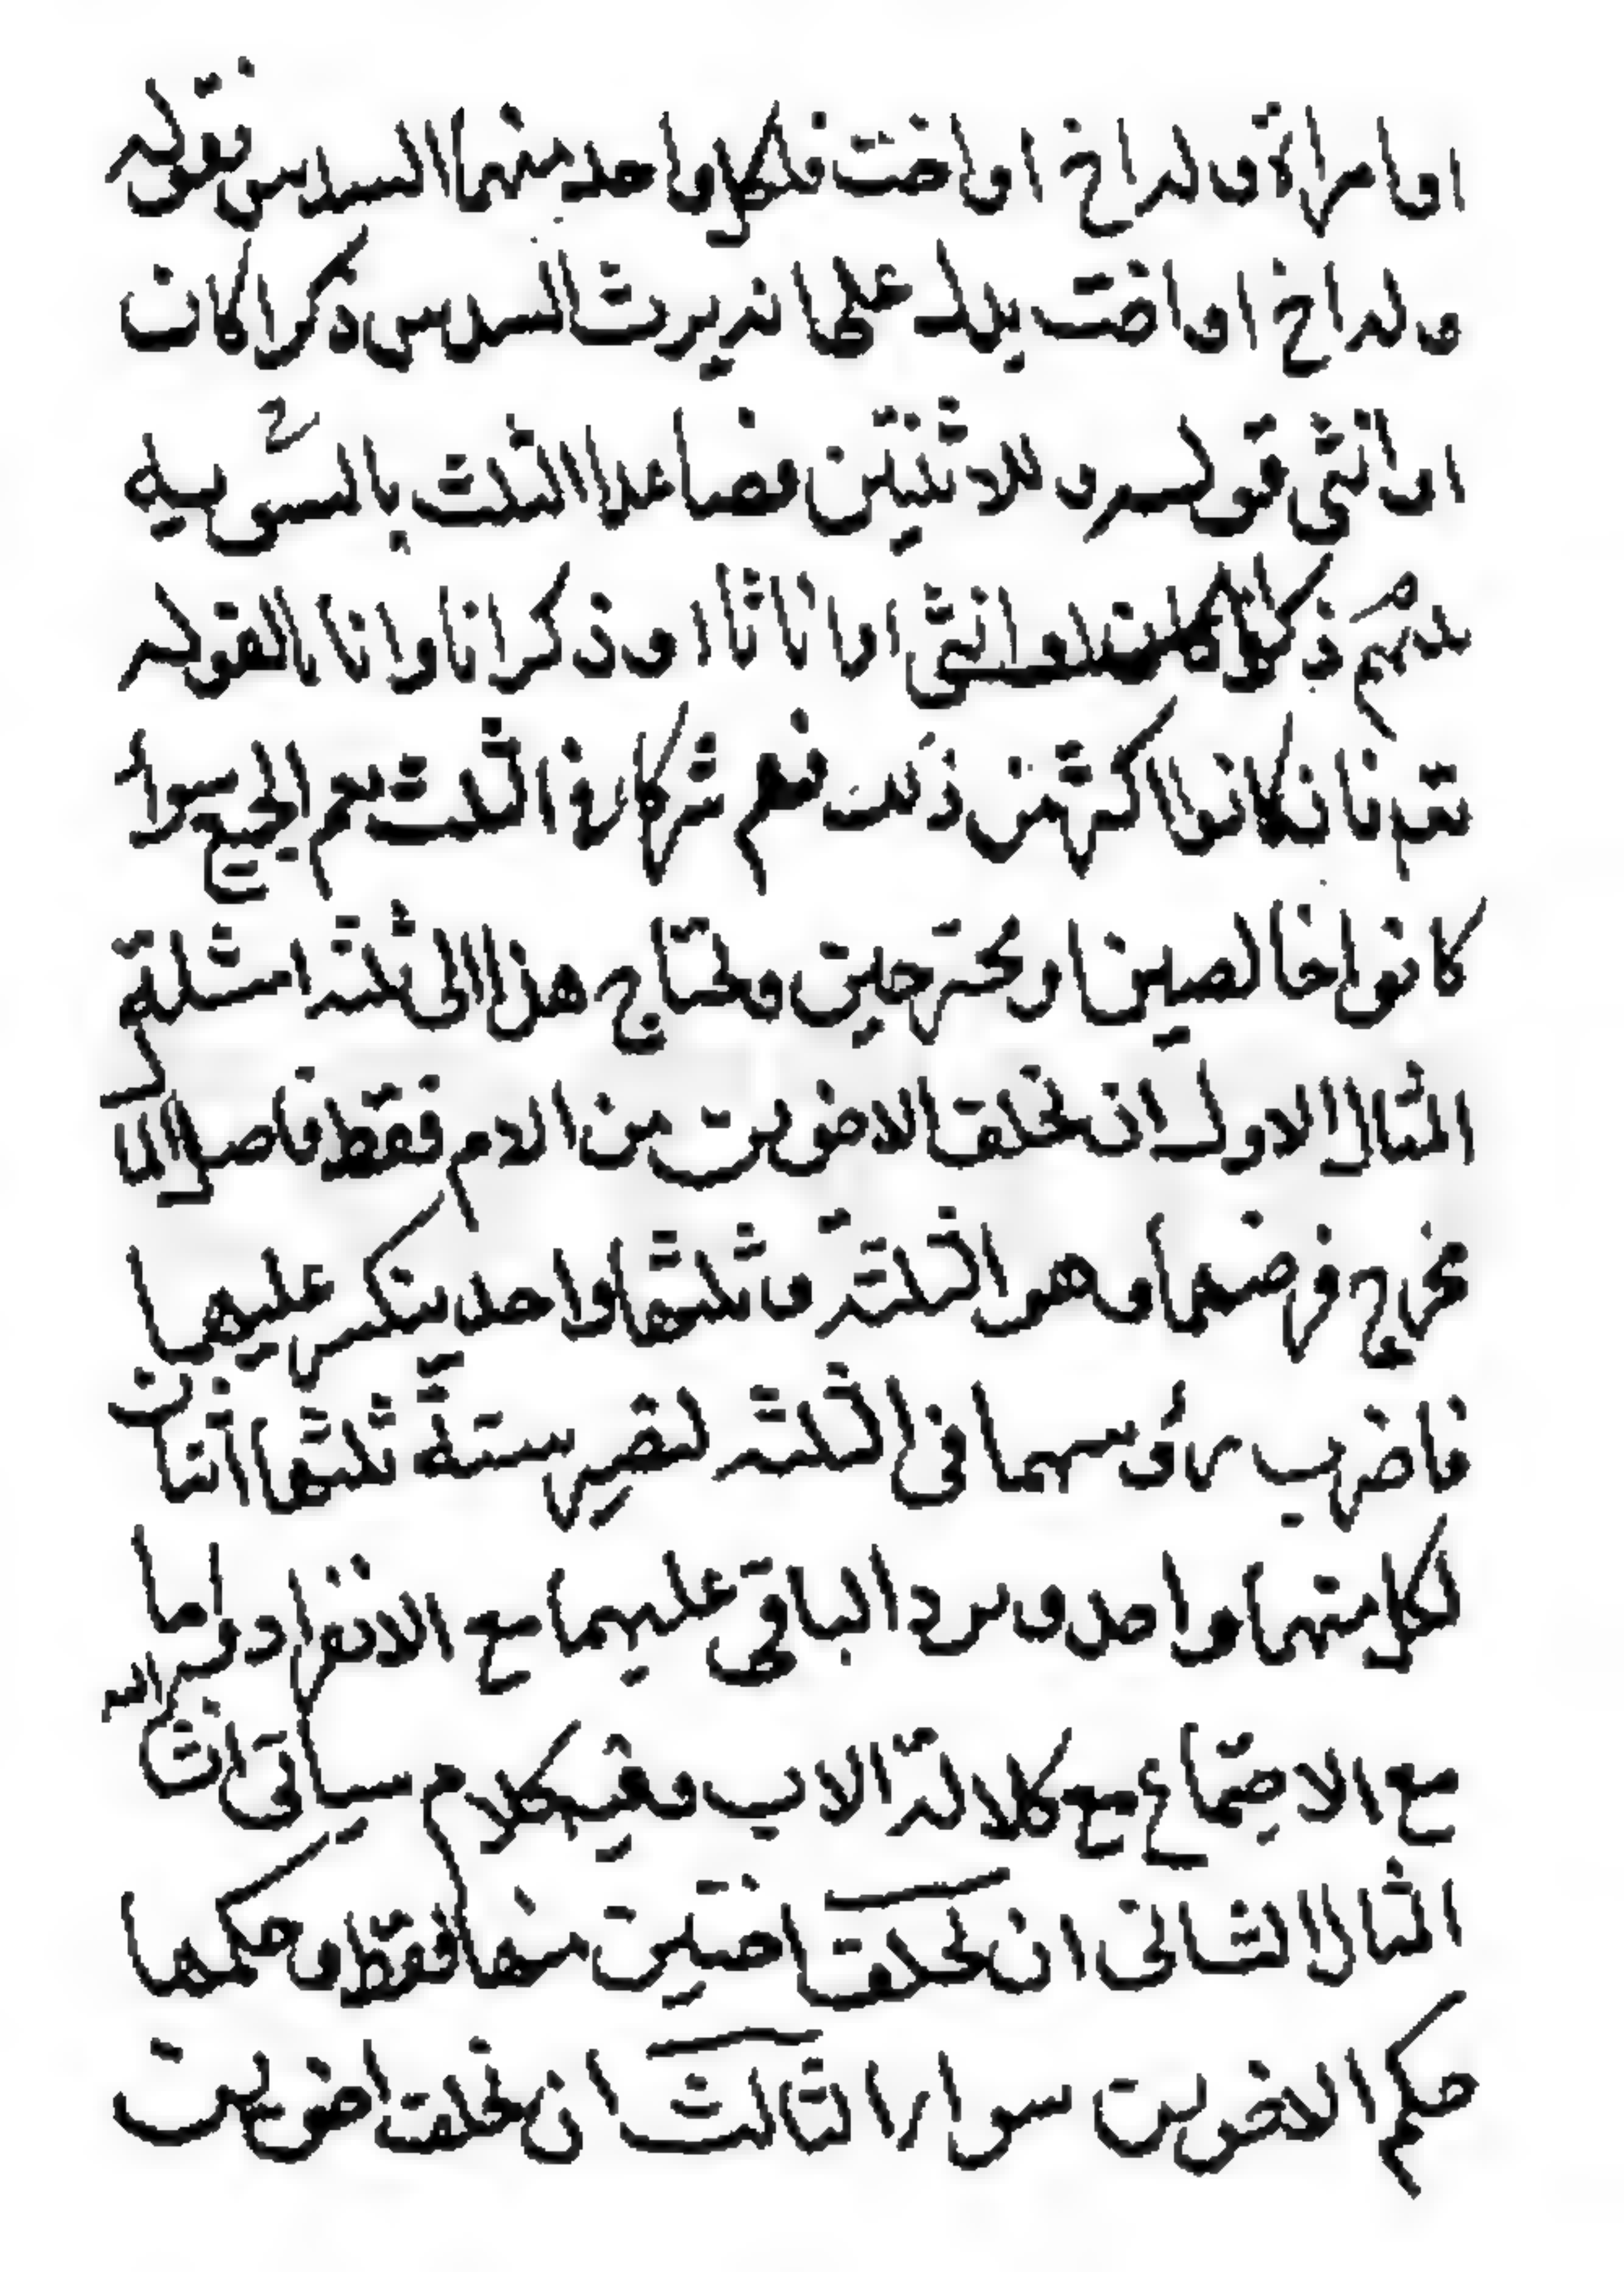 او امراة وله اخ او اخت فلكل واحد منهما السدس فقوله
وله اخ او اخت يدل على انه يرث السدس ذكرا كان
او انثى قوله وللاثنتين فصاعدا الثلث بالسوية
بينهم ذكورا كانوا او انثى او اناثا او ذكرانا واناثا لقوله
تعم فان كانوا اكثر من ذلك فهم شركاء في الثلث يعم الجميع سواء
كانوا خالصين او ممتزجين ويحتاج هذا الى ثلثة امثلة
المثال الاول ان تخلف الاخوين من الام فقط فاصل المال
مخرج فرضهما وهو الثلثة وثلثها واحد ينكسر عليهما
فاضرب رؤسهما في الثلثة تصير ستة ثلثها اثنان
لكل منهما واحد ويرد الباقي عليهما مع الانفراد واما
مع الاجتماع مع كلالة الاب ففيه كلام سياتى ان شاء الله
المثال الثانى ان تخلف اختين منها فقط وحكمها
حكم الاخوين سواء الثالث ان تخلف اخوين